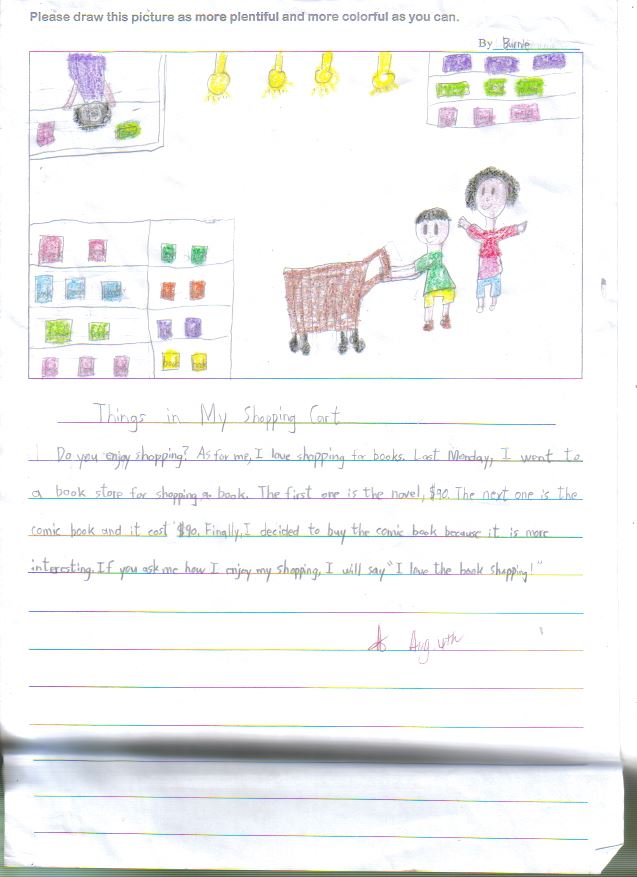 Please draw this picture as more plentiful and more colorful as you can.
By Burnie
Things in My Shopping Cart
Do you enjoy shopping? As for me, I love shopping for books. Last Monday, I went to
a book store for shopping a book. The first one is the novel, $90. The next one is the
comic book and it cost $90. Finally, I decided to buy the comic book because it is more
interesting. If you ask me how I enjoy my shopping, I will say "I love the book shopping!"
Aug.